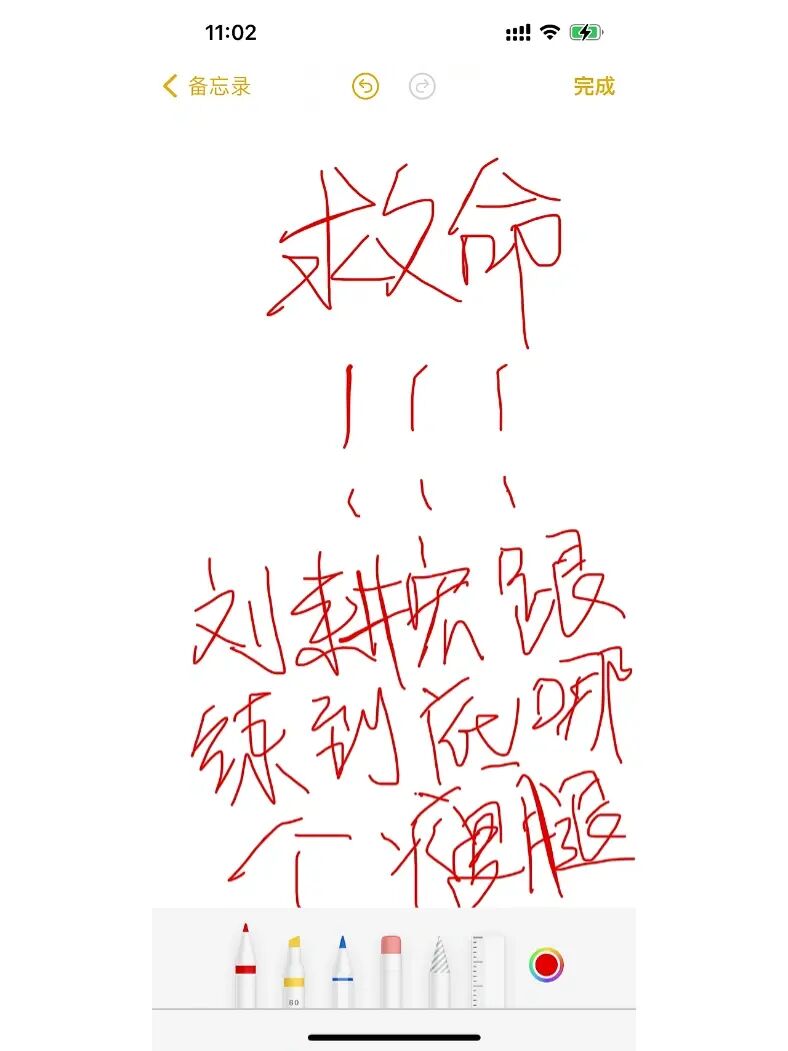 11:02
备忘录 完成
救命
!!!
刘耕宏跟
练到底哪
个瘦腿
60